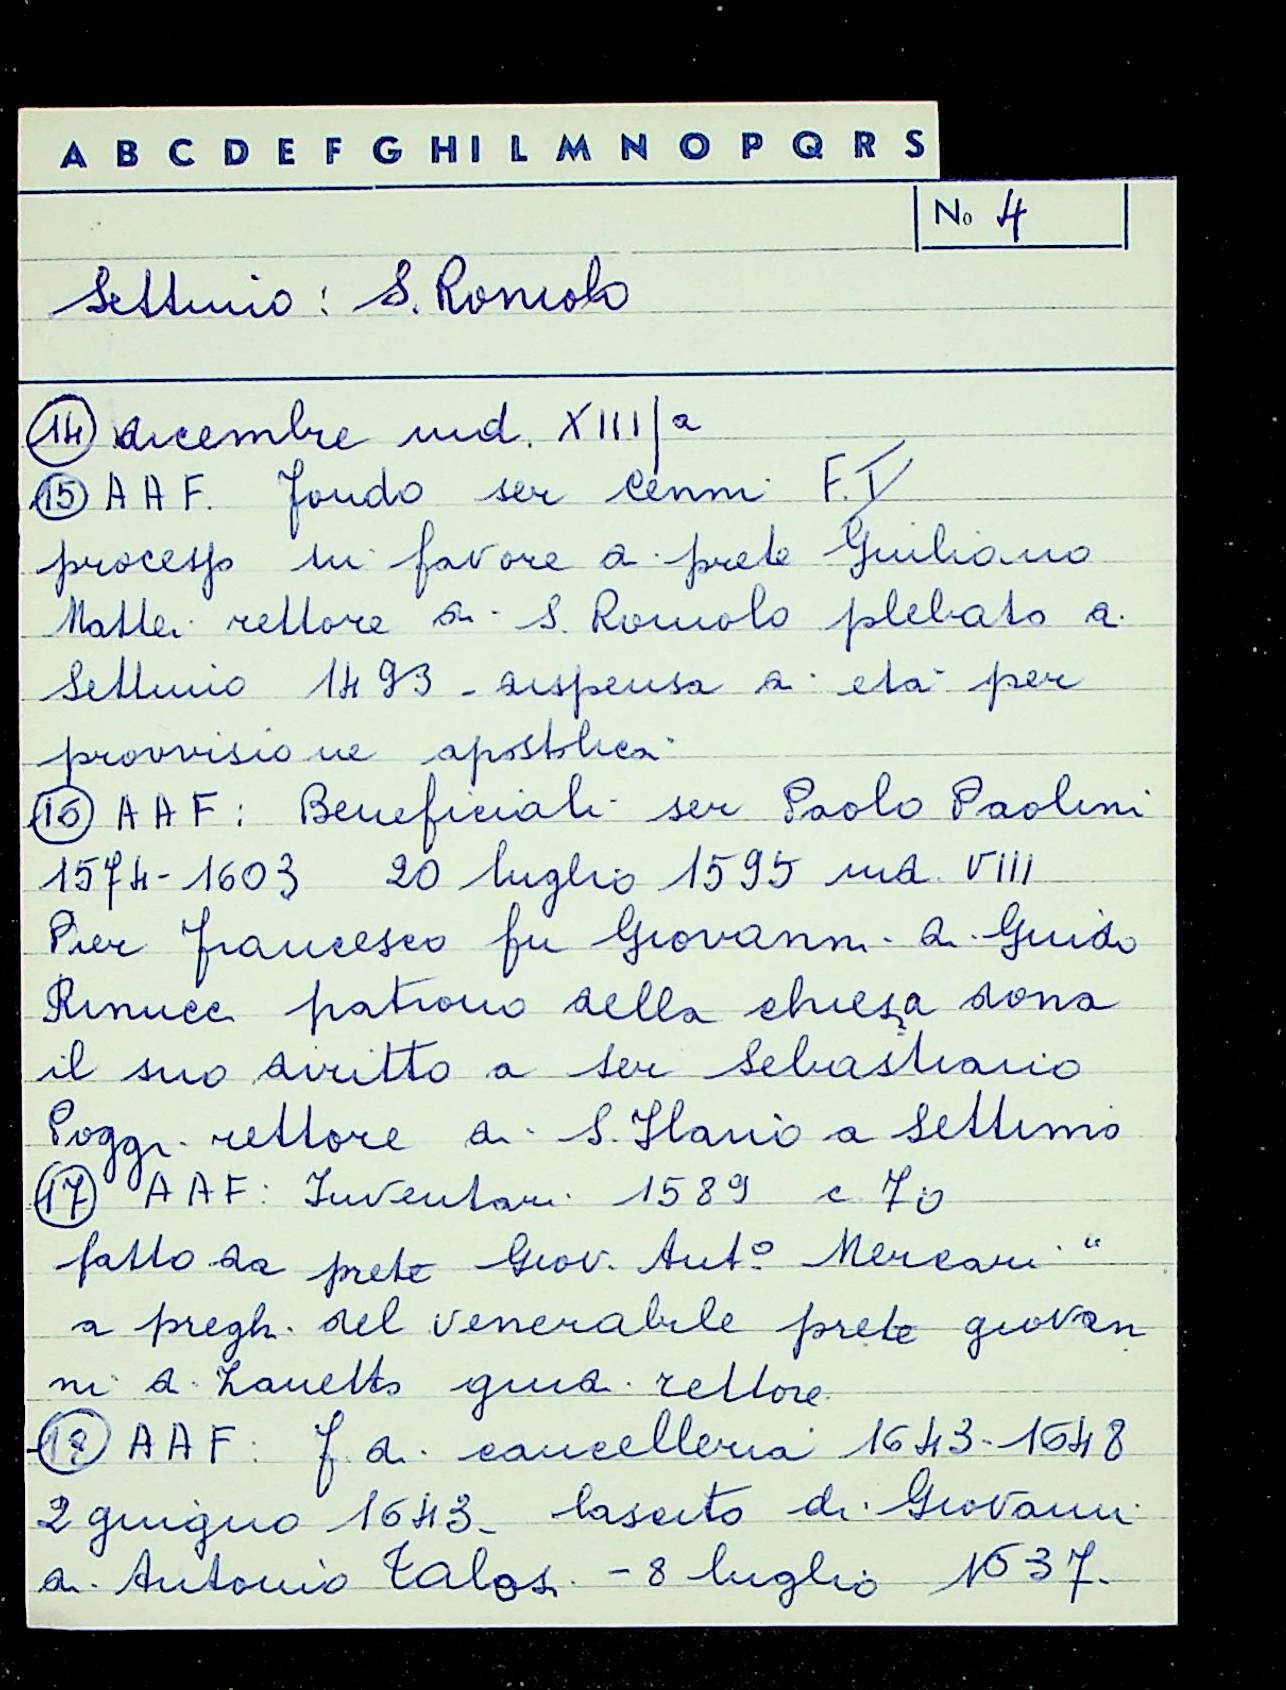 A B C D E F G H I L M N O P Q R S
No 4
Settimo : S. Romolo
14 dicembre ind. XIII/a
15 AAF. Fondo ser Cenni F. I
processo in favore di prete Giuliano
Mattei rettore di S. Romolo plebato di
Settimo 1493 - dispensa di età per
provvisione apostolica.
16 AAF: Beneficiali ser Paolo Paolini
1574-1603 20 luglio 1595 ind. VIII
Pier Francesco fu Giovanni di Guido
Rinucci patrono della chiesa dona
il suo diritto a ser Sebastiano
Poggi rettore di S. Ilario a Settimo
17 AAF: Inventari 1589 c 70
fatto da prete Giov. Antº Mercari "
a pregh. del venerabile prete giovan
ni di Zanetto quid. rettore
18 AAF: F. di cancelleria 1643-1648
2 giugno 1643 - lascito di Giovanni
di Antonio Talosi - 8 luglio 1637.